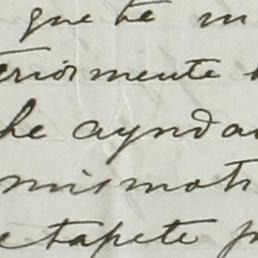 que te m
teriormente
he ayuda
mismoti
etapete p